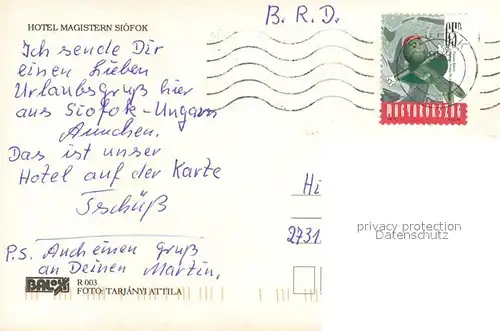 HOTEL MAGISTERN SIÓFOK
B. R. D.
Ich sende Dir
einen lieben
Urlaubsgruß hier
aus Siofok-Ungarn
Das ist unser
Hotel auf der Karte
Tschüß
P.S. Auch einen gruß
an Deinen Martin,
65Ft
MAGYARORSZÁG
Hi
2731
privacy protection
Datenschutz
BALOX
R 003
FOTO: TARJÁNYI ATTILA